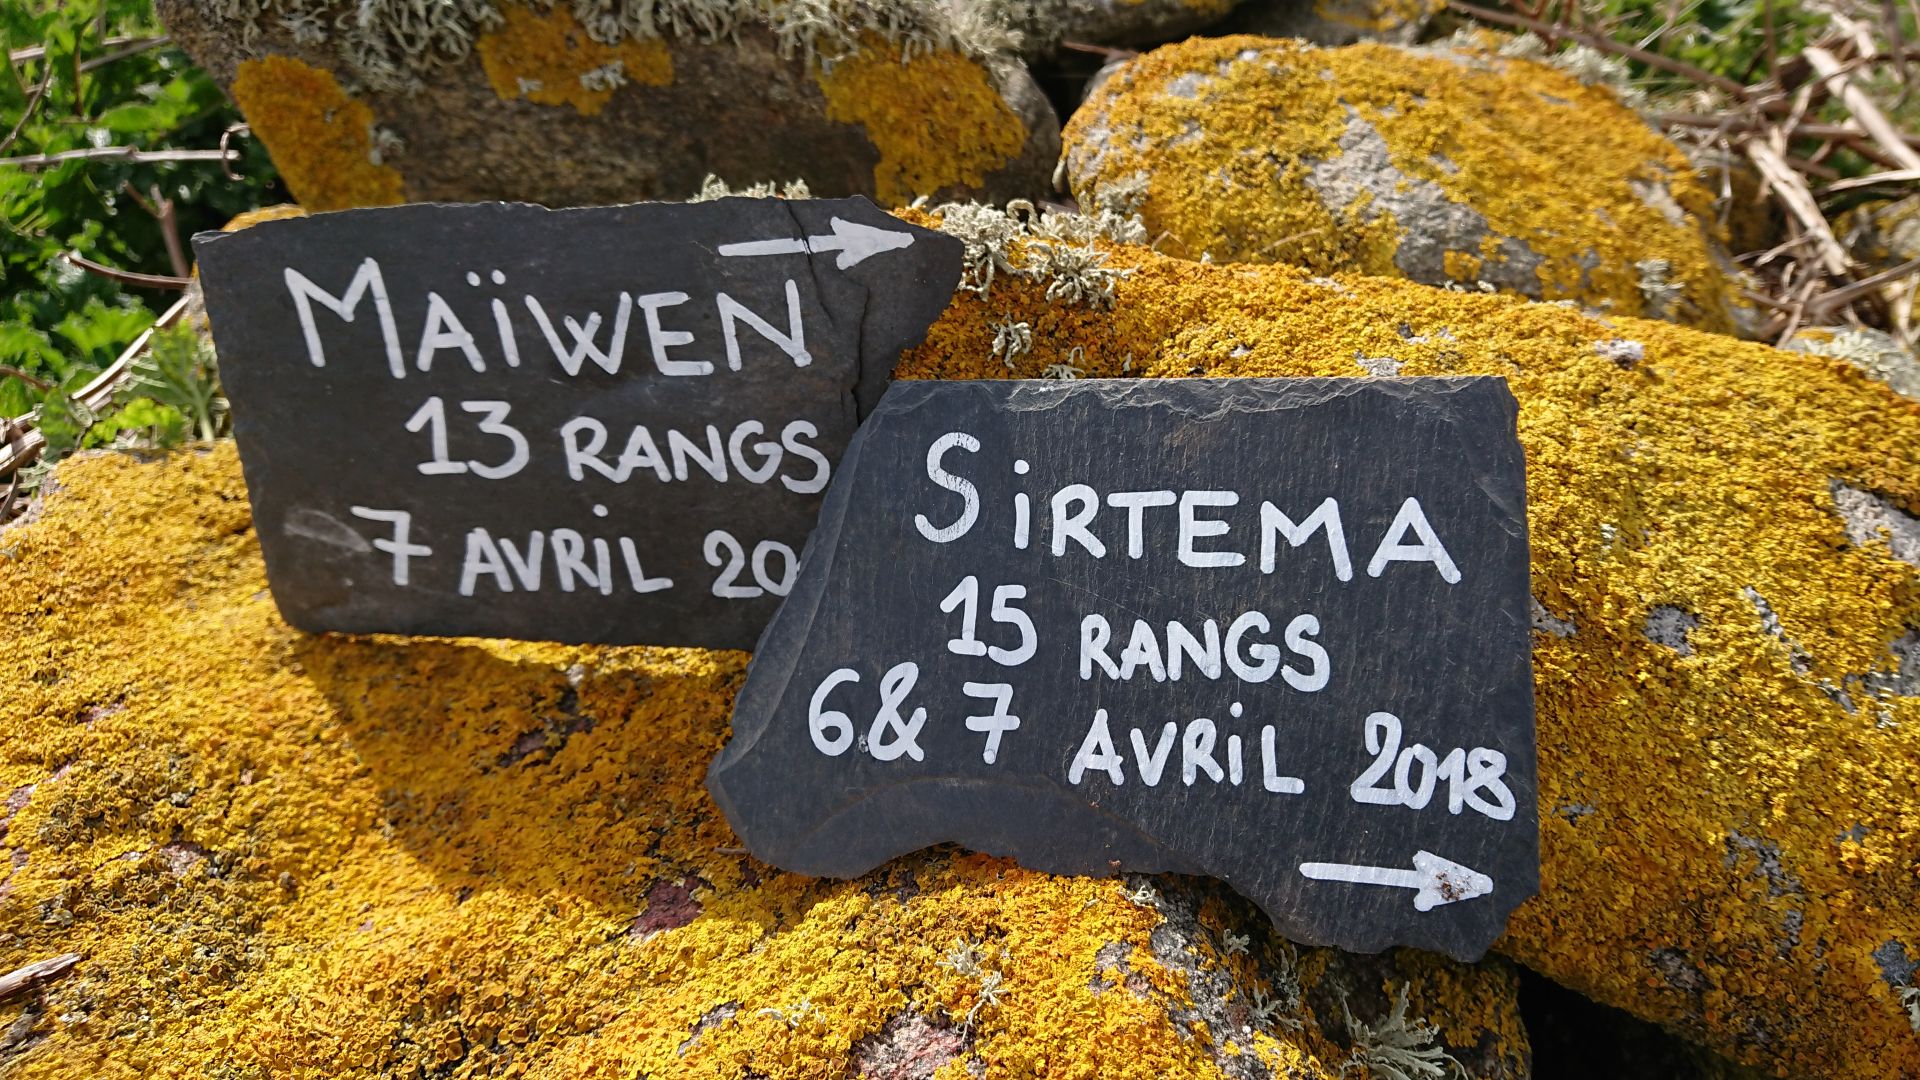 MAÏWEN
13 RANGS
7 AVRIL 20
SiRTEMA
15 RANGS
6 & 7 AVRiL 2018